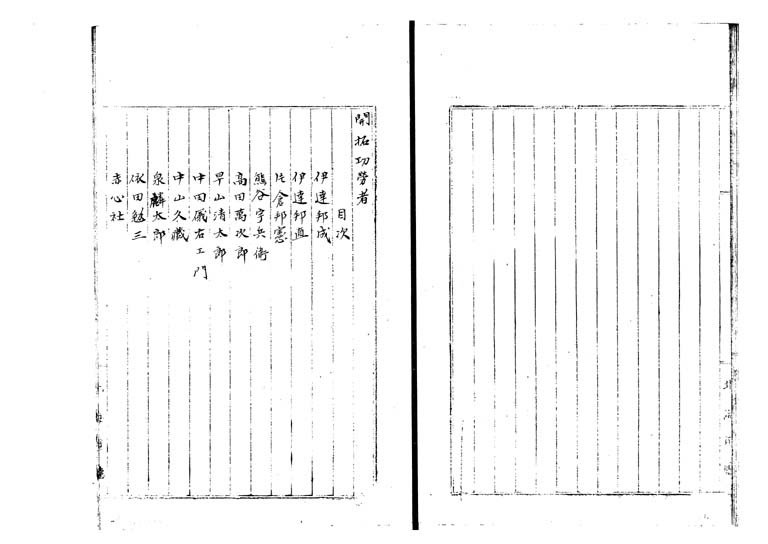 開拓功勞者
目次
伊達邦成
伊達邦直
片倉邦憲
熊谷宇兵衛
高田萬次郎
早山清太郎
中田儀右エ門
中山久藏
泉麟太郎
依田勉三
赤心社